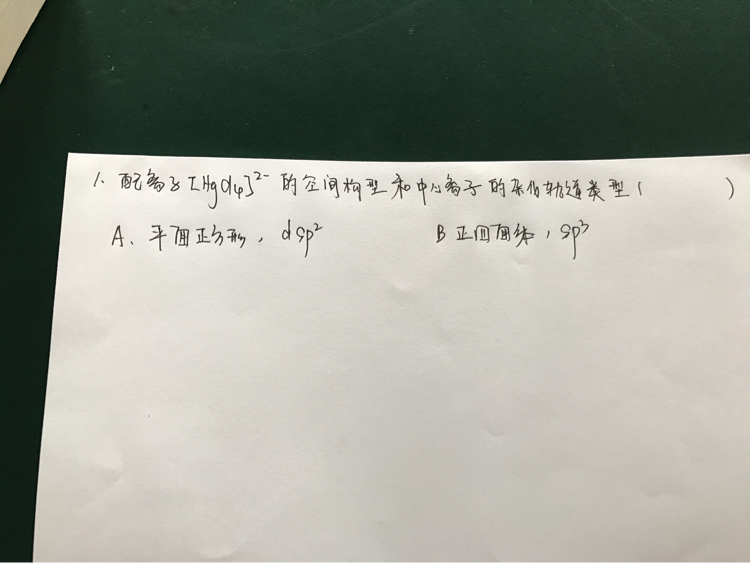 1. 配离子[HgCl₄]²⁻的空间构型和中心离子的杂化轨道类型( )
A、平面正方形，dsp² B 正四面体，sp³